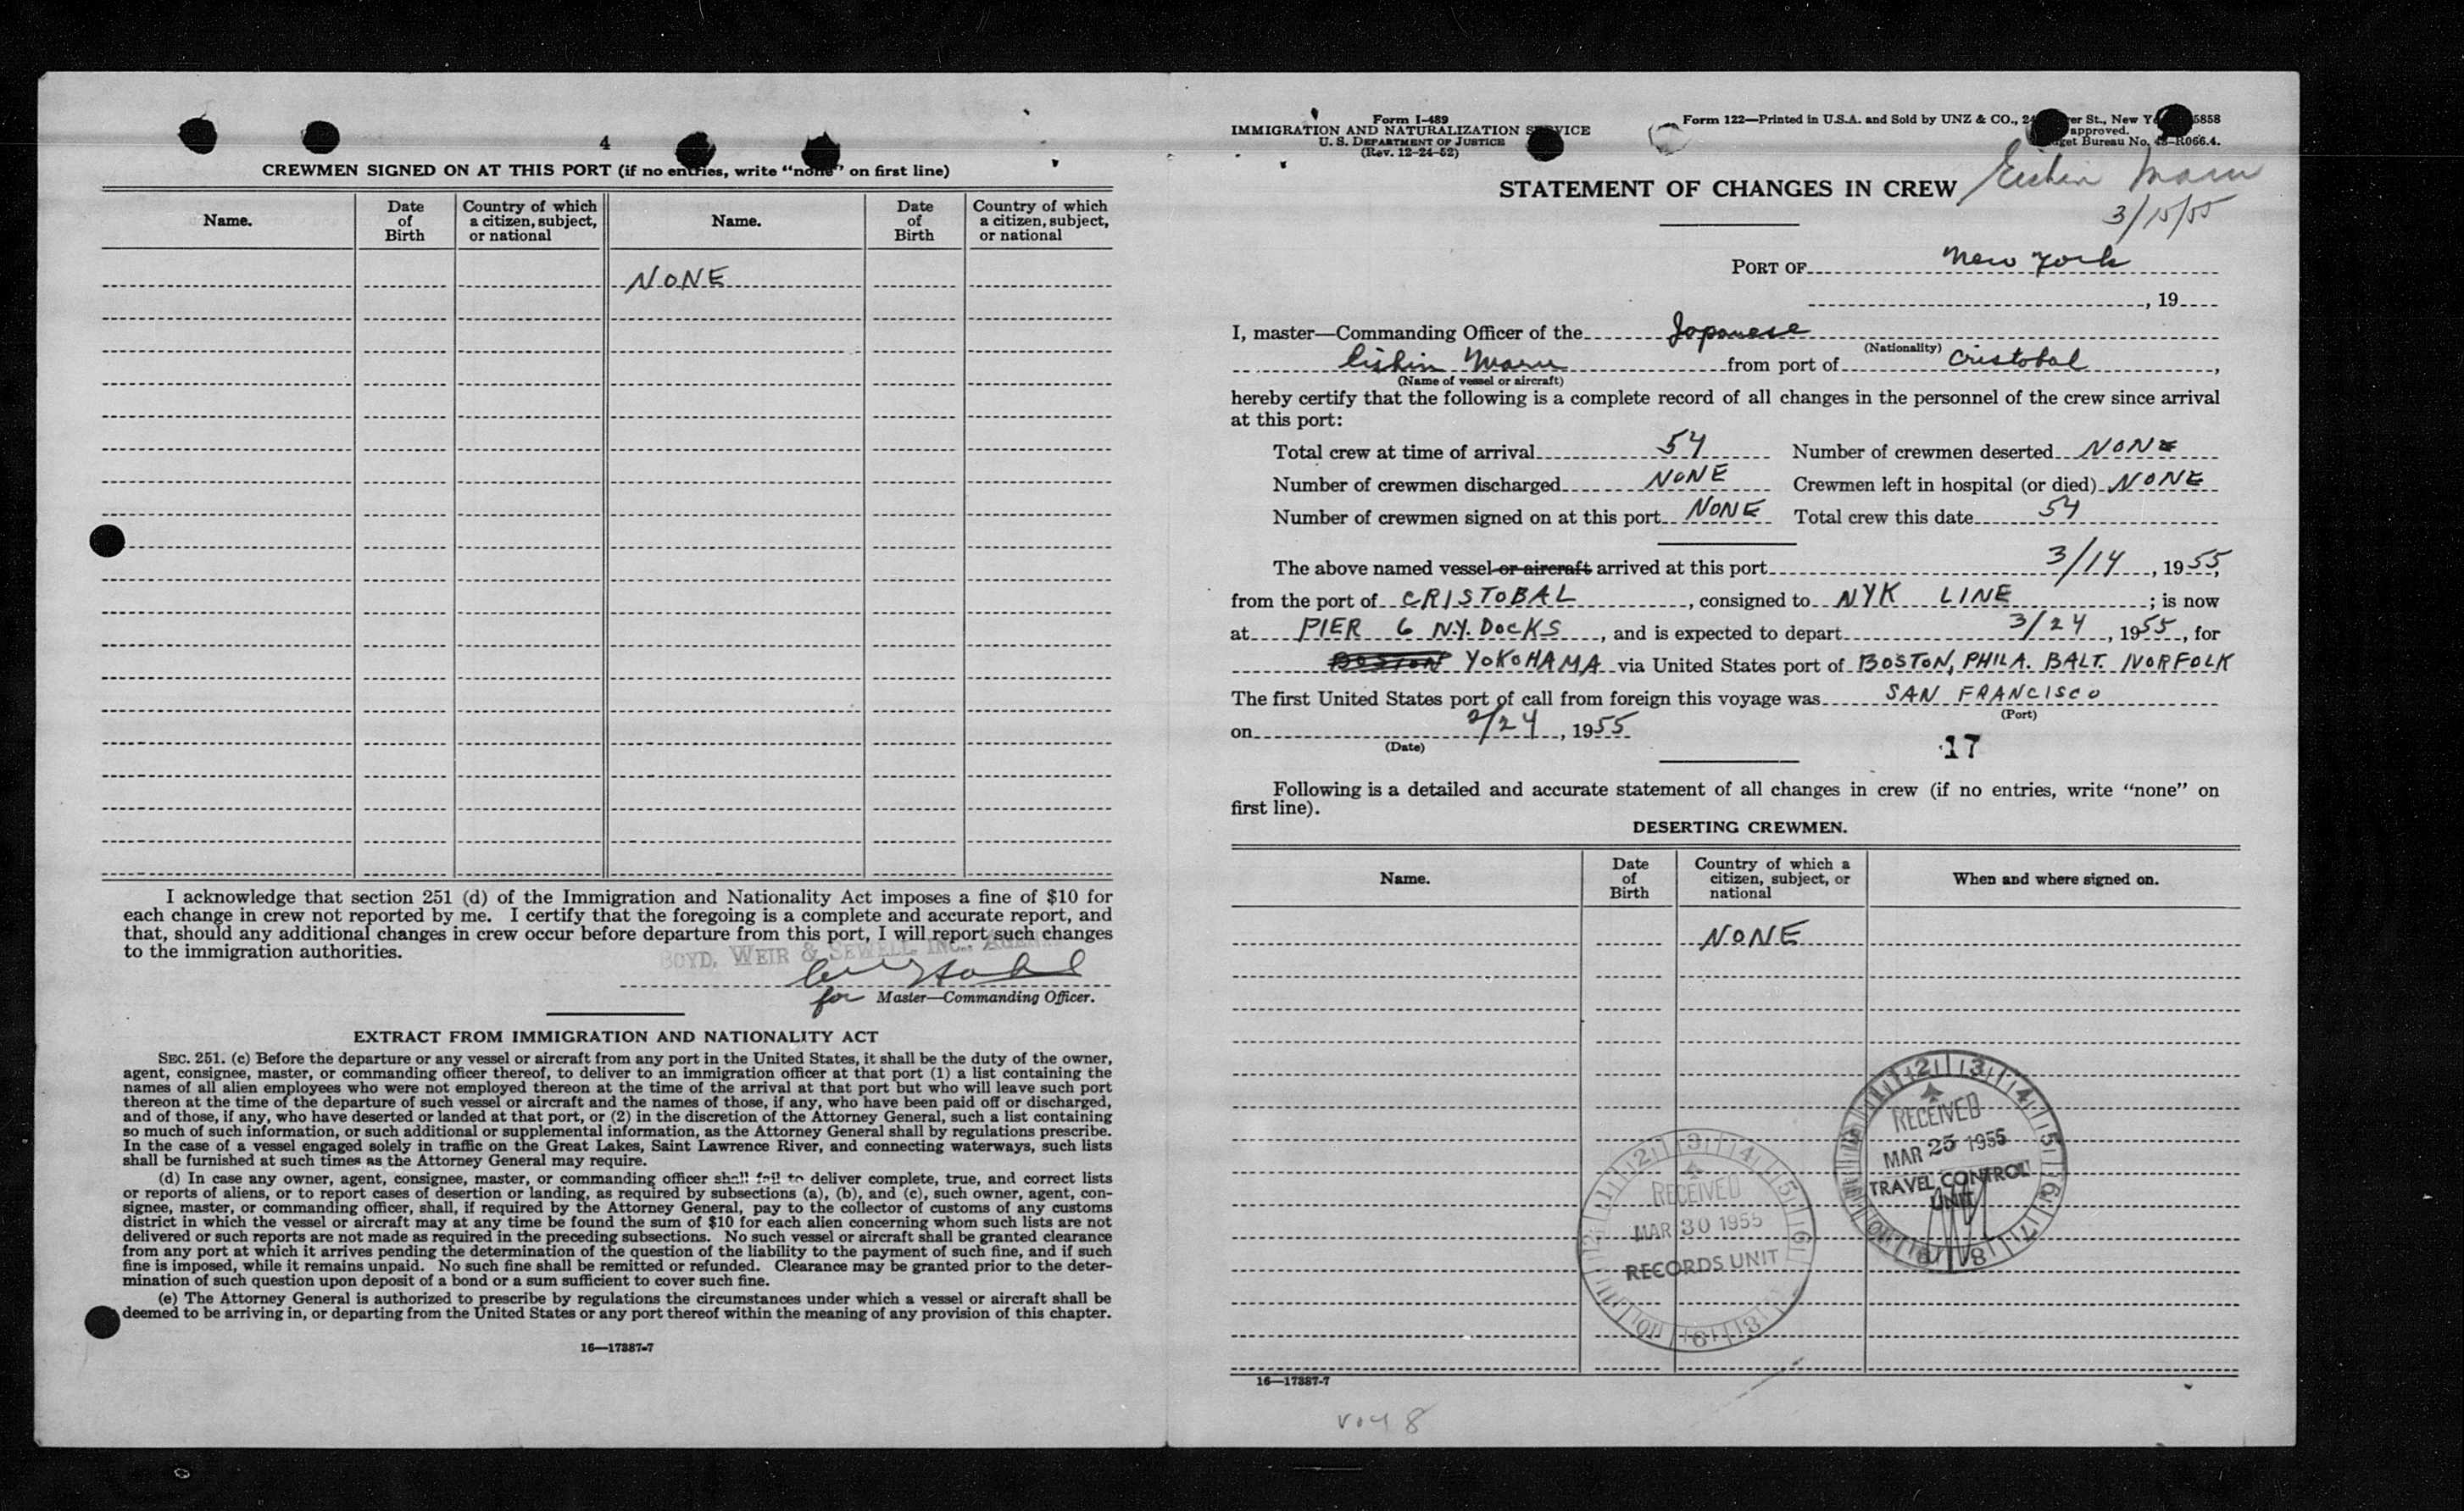 4
CREWMEN SIGNED ON AT THIS PORT (if no entries, write "none" on first line)
Name. Date of Birth Country of which a citizen, subject, or national Name. Date of Birth Country of which a citizen, subject, or national
NONE
I acknowledge that section 251 (d) of the Immigration and Nationality Act imposes a fine of $10 for
each change in crew not reported by me. I certify that the foregoing is a complete and accurate report, and
that, should any additional changes in crew occur before departure from this port, I will report such changes
to the immigration authorities.
BOYD, WEIR & SEWELL, INC., AGENTS
for Master—Commanding Officer.
EXTRACT FROM IMMIGRATION AND NATIONALITY ACT
SEC. 251. (c) Before the departure or any vessel or aircraft from any port in the United States, it shall be the duty of the owner,
agent, consignee, master, or commanding officer thereof, to deliver to an immigration officer at that port (1) a list containing the
names of all alien employees who were not employed thereon at the time of the arrival at that port but who will leave such port
thereon at the time of the departure of such vessel or aircraft and the names of those, if any, who have been paid off or discharged,
and of those, if any, who have deserted or landed at that port, or (2) in the discretion of the Attorney General, such a list containing
so much of such information, or such additional or supplemental information, as the Attorney General shall by regulations prescribe.
In the case of a vessel engaged solely in traffic on the Great Lakes, Saint Lawrence River, and connecting waterways, such lists
shall be furnished at such times as the Attorney General may require.
(d) In case any owner, agent, consignee, master, or commanding officer shall fail to deliver complete, true, and correct lists
or reports of aliens, or to report cases of desertion or landing, as required by subsections (a), (b), and (c), such owner, agent, con-
signee, master, or commanding officer, shall, if required by the Attorney General, pay to the collector of customs of any customs
district in which the vessel or aircraft may at any time be found the sum of $10 for each alien concerning whom such lists are not
delivered or such reports are not made as required in the preceding subsections. No such vessel or aircraft shall be granted clearance
from any port at which it arrives pending the determination of the question of the liability to the payment of such fine, and if such
fine is imposed, while it remains unpaid. No such fine shall be remitted or refunded. Clearance may be granted prior to the deter-
mination of such question upon deposit of a bond or a sum sufficient to cover such fine.
(e) The Attorney General is authorized to prescribe by regulations the circumstances under which a vessel or aircraft shall be
deemed to be arriving in, or departing from the United States or any port thereof within the meaning of any provision of this chapter.
16—17387-7
Form I-489
IMMIGRATION AND NATURALIZATION SERVICE
U. S. DEPARTMENT OF JUSTICE
(Rev. 12-24-52)
Form 122—Printed in U.S.A. and Sold by UNZ & CO., St., New 5858
approved.
Bureau No. 43-R066.4.
STATEMENT OF CHANGES IN CREW Eishin Maru
3/15/55
PORT OF New York
, 19
I, master—Commanding Officer of the Japanese
(Nationality)
Eishin Maru from port of Cristobal,
(Name of vessel or aircraft)
hereby certify that the following is a complete record of all changes in the personnel of the crew since arrival
at this port:
Total crew at time of arrival 54 Number of crewmen deserted NONE
Number of crewmen discharged NONE Crewmen left in hospital (or died) NONE
Number of crewmen signed on at this port NONE Total crew this date 54
The above named vessel or aircraft arrived at this port 3/14, 1955,
from the port of CRISTOBAL, consigned to NYK LINE; is now
at PIER 6 N.Y. DOCKS, and is expected to depart 3/24, 1955, for
BOSTON YOKOHAMA via United States port of BOSTON, PHILA. BALT. NORFOLK
The first United States port of call from foreign this voyage was SAN FRANCISCO
(Port)
on 2/24, 1955
(Date)
17
Following is a detailed and accurate statement of all changes in crew (if no entries, write "none" on
first line).
DESERTING CREWMEN.
Name. Date of Birth Country of which a citizen, subject, or national When and where signed on.
NONE
RECEIVED
MAR 25 1955
TRAVEL CONTROL
UNIT
RECEIVED
MAR 30 1955
RECORDS UNIT
16—17387-7